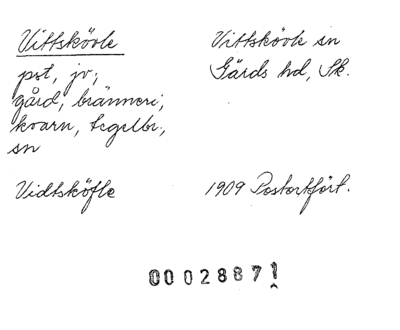 Vittskövle
Vittskövle sn
Gärds hd, Sk.
pst, jv;
gård; bränneri;
kvarn, tegelbr.;
sn
Vidtsköfle
1909 Postortfört.
0002887!